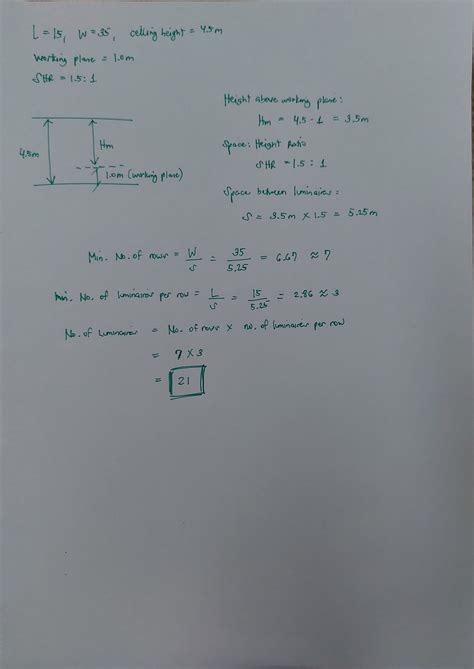 L = 15, W = 35, ceiling height = 4.5m
Working plane = 1.0m
SHR = 1.5 : 1
Height above working plane:
Hm = 4.5 - 1 = 3.5m
Space: Height Ratio
SHR = 1.5 : 1
Space between luminaires:
S = 3.5m × 1.5 = 5.25m
4.5m
Hm
1.0m (working plane)
Min. No. of rows = W/S = 35/5.25 = 6.67 ≈ 7
Min. No. of luminaires per row = L/S = 15/5.25 = 2.86 ≈ 3
No. of luminaires = No. of rows × no. of luminaires per row
= 7 × 3
= 21